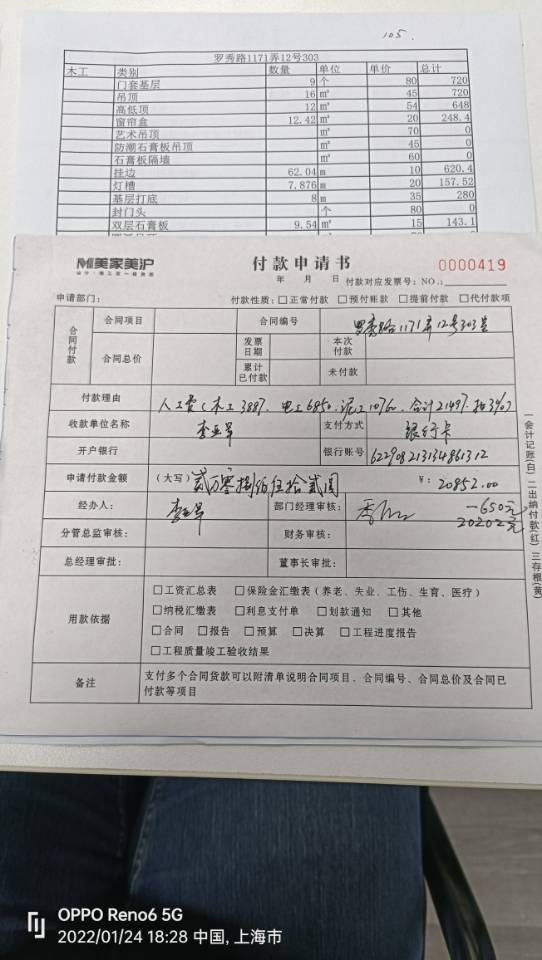 105.
罗秀路1171弄12号303
木工 类别 数量 单位 单价 总计
门套基层 9 个 80 720
吊顶 16 ㎡ 45 720
高低顶 12 ㎡ 54 648
窗帘盒 12.42 ㎡ 20 248.4
艺术吊顶 ㎡ 70 0
防潮石膏板吊顶 ㎡ 45 0
石膏板隔墙 ㎡ 60 0
挂边 62.04 m 10 620.4
灯槽 7.876 m 20 157.52
基层打底 8 m 35 280
封门头 个 80 0
双层石膏板 9.54 ㎡ 15 143.1
美家美沪 付款申请书 0000419
年 月 日 付款对应发票号:NO.:
申请部门: 付款性质:□正常付款 □预付账款 □提前付款 □代付款项
合同付款 合同项目 合同编号 罗秀路1171弄12号303室
合同总价 发票日期 本次付款
累计已付款 未付款
付款理由 人工费(木工3887. 电工6850. 泥工10760. 合计21497. 扣3%)
收款单位名称 李亚军 支付方式 银行卡
开户银行 银行账号 6229082131348613 12
申请付款金额 (大写) 贰万零捌佰伍拾贰圆 ¥: 20852.00
经办人: 李亚军 部门经理审核: -650元
20202元
分管总监审核: 财务审核:
总经理审批: 董事长审批:
用款依据 □工资汇总表 □保险金汇缴表(养老、失业、工伤、生育、医疗)
□纳税汇缴表 □利息支付单 □划款通知 □其他
□合同 □报告 □预算 □决算 □工程进度报告
□工程质量竣工验收结果
备注 支付多个合同货款可以附清单说明合同项目、合同编号、合同总价及合同已
付款等项目
一会计记账(白) 二出纳付款(红) 三存根(黄)
OPPO Reno6 5G
2022/01/24 18:28 中国, 上海市